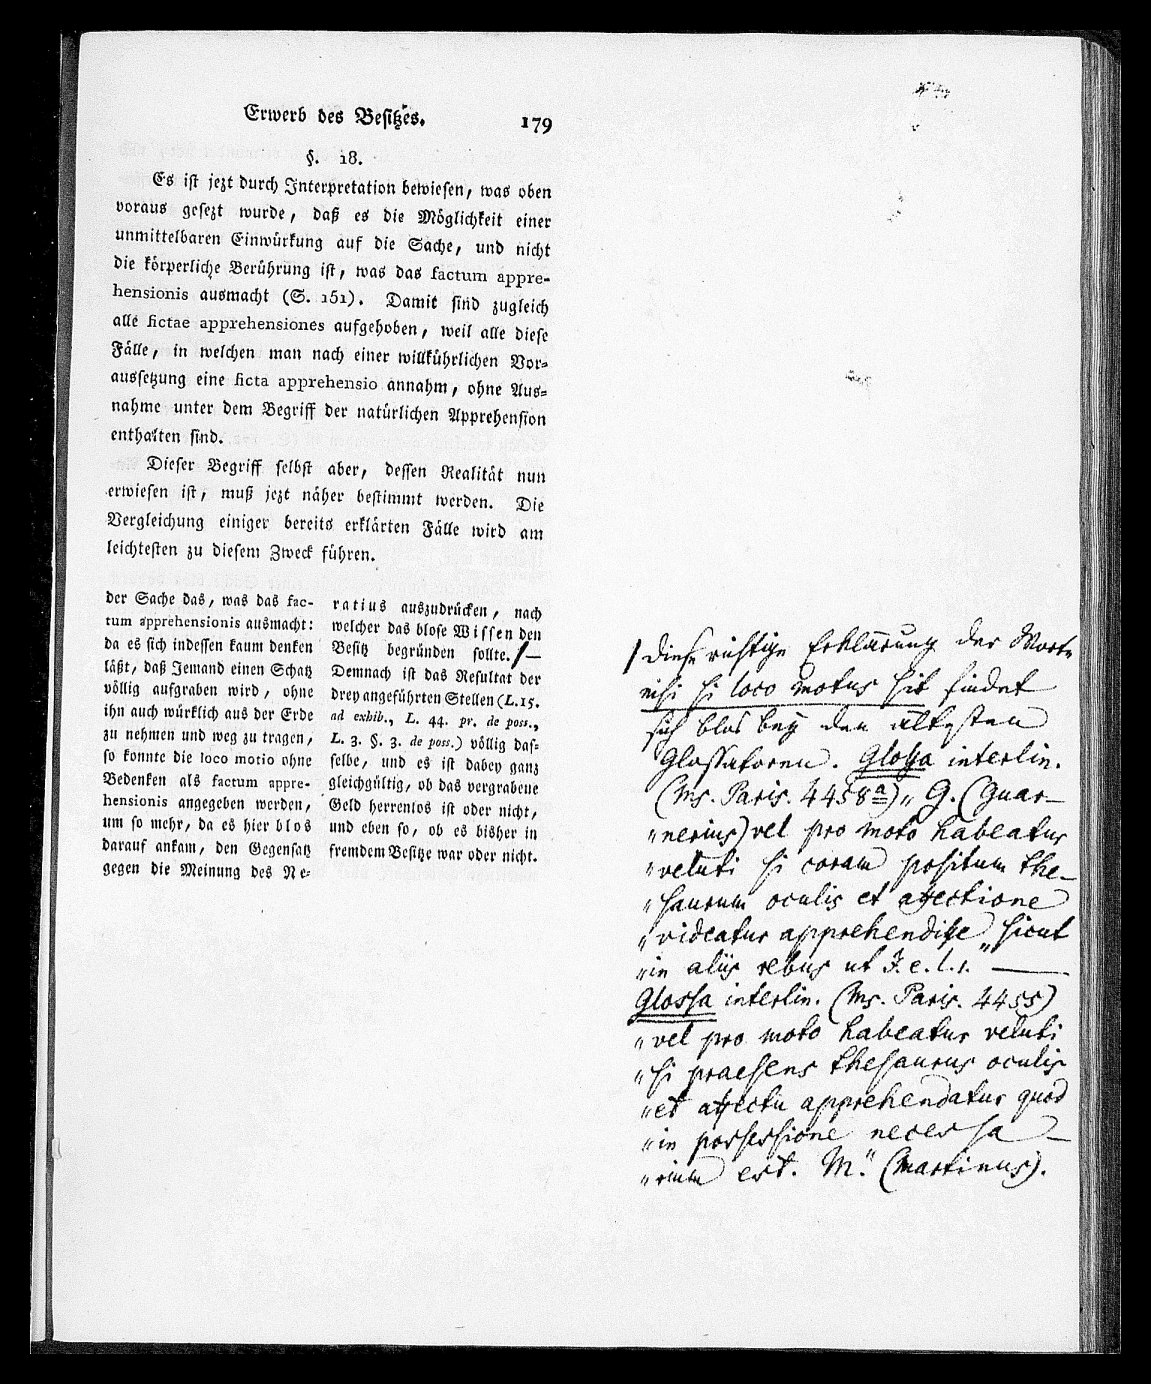 Erwerb des Besitzes.
179
§. 18.
Es ist jezt durch Interpretation bewiesen, was oben
voraus gesezt wurde, daß es die Möglichkeit einer
unmittelbaren Einwürkung auf die Sache, und nicht
die körperliche Berührung ist, was das factum appre-
hensionis ausmacht (S. 151). Damit sind zugleich
alle fictae apprehensiones aufgehoben, weil alle diese
Fälle, in welchen man nach einer willkührlichen Vor-
aussetzung eine ficta apprehensio annahm, ohne Aus-
nahme unter dem Begriff der natürlichen Apprehension
enthalten sind.
Dieser Begriff selbst aber, dessen Realität nun
erwiesen ist, muß jezt näher bestimmt werden. Die
Vergleichung einiger bereits erklärten Fälle wird am
leichtesten zu diesem Zweck führen.
der Sache das, was das fac-
tum apprehensionis ausmacht:
da es sich indessen kaum denken
läßt, daß Jemand einen Schatz
völlig aufgraben wird, ohne
ihn auch würklich aus der Erde
zu nehmen und weg zu tragen,
so konnte die loco motio ohne
Bedenken als factum appre-
hensionis angegeben werden,
um so mehr, da es hier blos
darauf ankam, den Gegensatz
gegen die Meinung des Ne-
ratius auszudrücken, nach
welcher das blose Wissen den
Besitz begründen sollte. /—
Demnach ist das Resultat der
drey angeführten Stellen (L. 15.
ad exhib., L. 44. pr. de poss.,
L. 3. §. 3. de poss.) völlig das-
selbe, und es ist dabey ganz
gleichgültig, ob das vergrabene
Geld herrenlos ist oder nicht,
und eben so, ob es bisher in
fremdem Besitze war oder nicht.
/ Diese richtige Erklärung der Worte
nisi si loco motus sit findet
sich blos bey den ältesten
Glossatoren. Glossa interlin.
(Ms. Paris. 4458ª) „ G. (Guar-
„nerius) vel pro moto habeatur
„veluti si coram positum the-
„saurum oculis et affectione
„videatur apprehendisse" sicut
„in aliis rebus ut J. e. l. 1. —
Glossa interlin. (Ms. Paris. 4455)
„vel pro moto habeatur veluti
„si praesens thesaurus oculis
„et affectu apprehendatur quod
„in possessione necessa-
„rium est. M." (Martinus).